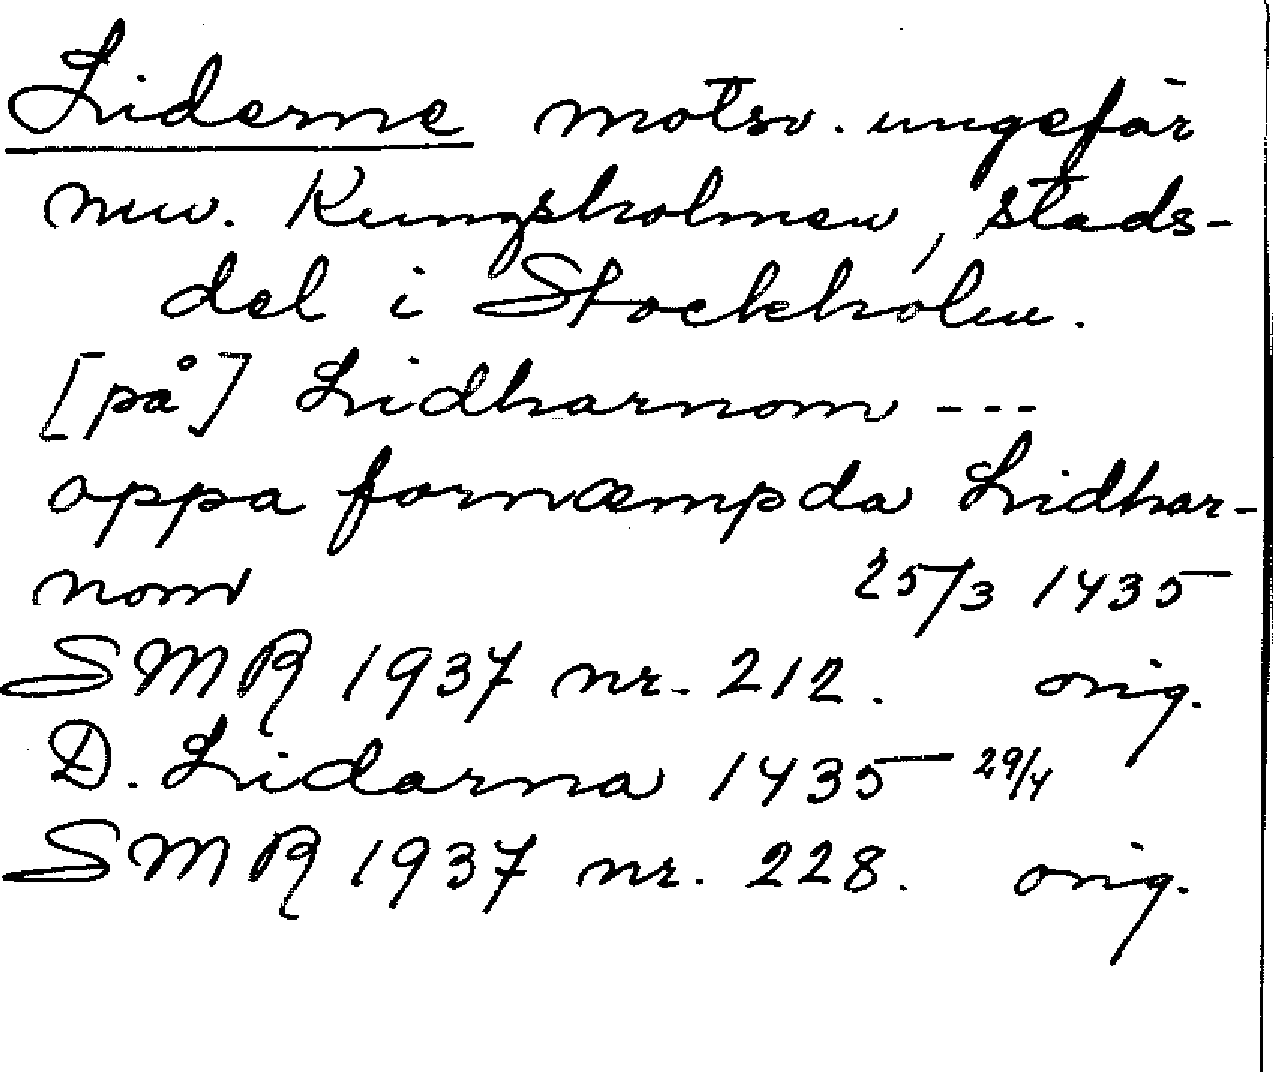 Liderne motsv. ungefär
nuv. Kungsholmen, stads-
del i Stockholm.
[på] Lidharnom ---
oppa fornæmpda Lidhar-
nom 25/3 1435
SMR 1937 nr. 212. orig.
D. Lidarna 1435 29/4
SMR 1937 nr. 228. orig.